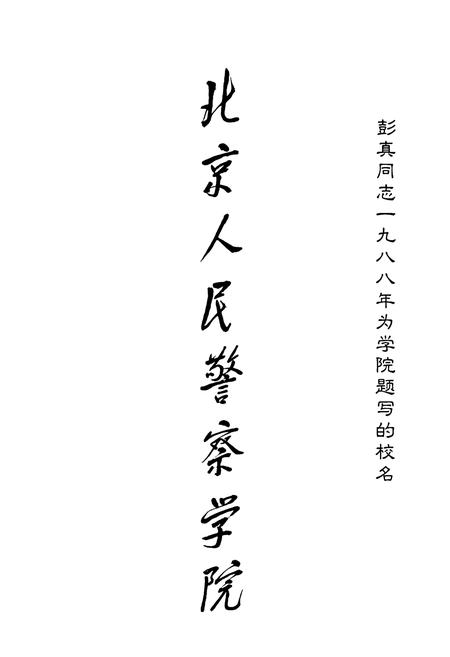 彭真同志一九八八年为学院题写的校名
北京人民警察学院